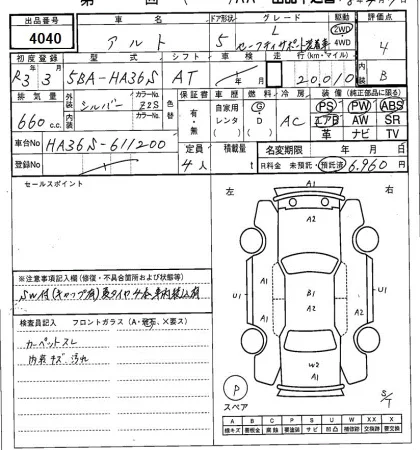 出品番号 車名 ドア形状 グレード 駆動 評価点
4040 アルト 5 L 2WD 4WD 4
セーフティサポート装着車
初度登録 型式 シフト 車検 走行(km・マイル) 内装
R3年3月 5BA-HA36S AT 年 月 20,010 B
排気量 外装 シルバー カラーNo. Z2S 色替 保証書 車歴 燃料 冷房 装備(純正部品に限る)
660c.c. 内装 カラーNo. 有・無 自家用 レンタ G・D AC PS PW ABS
エアB AW SR
革 ナビ TV
車台No HA36S-611200 定員 積載量 名変期限 年 月 日
登録No 4人 t R料金 未預託・預託済 6,960円
セールスポイント
左 右
A1
A2
A1 A1 B1 A2
U1 U1
A2
W2
A1
※注意事項記入欄(修復・不具合箇所および状態等)
検査員記入 フロントガラス(A・飛石、X要ス)
カーペットスレ
内装キズ、汚れ
P
スペア
S/T
A B C P S U W X XX
線キズ 要板金 腐蝕 要塗装 サビ 凹凸 補修跡 要交換 書交換